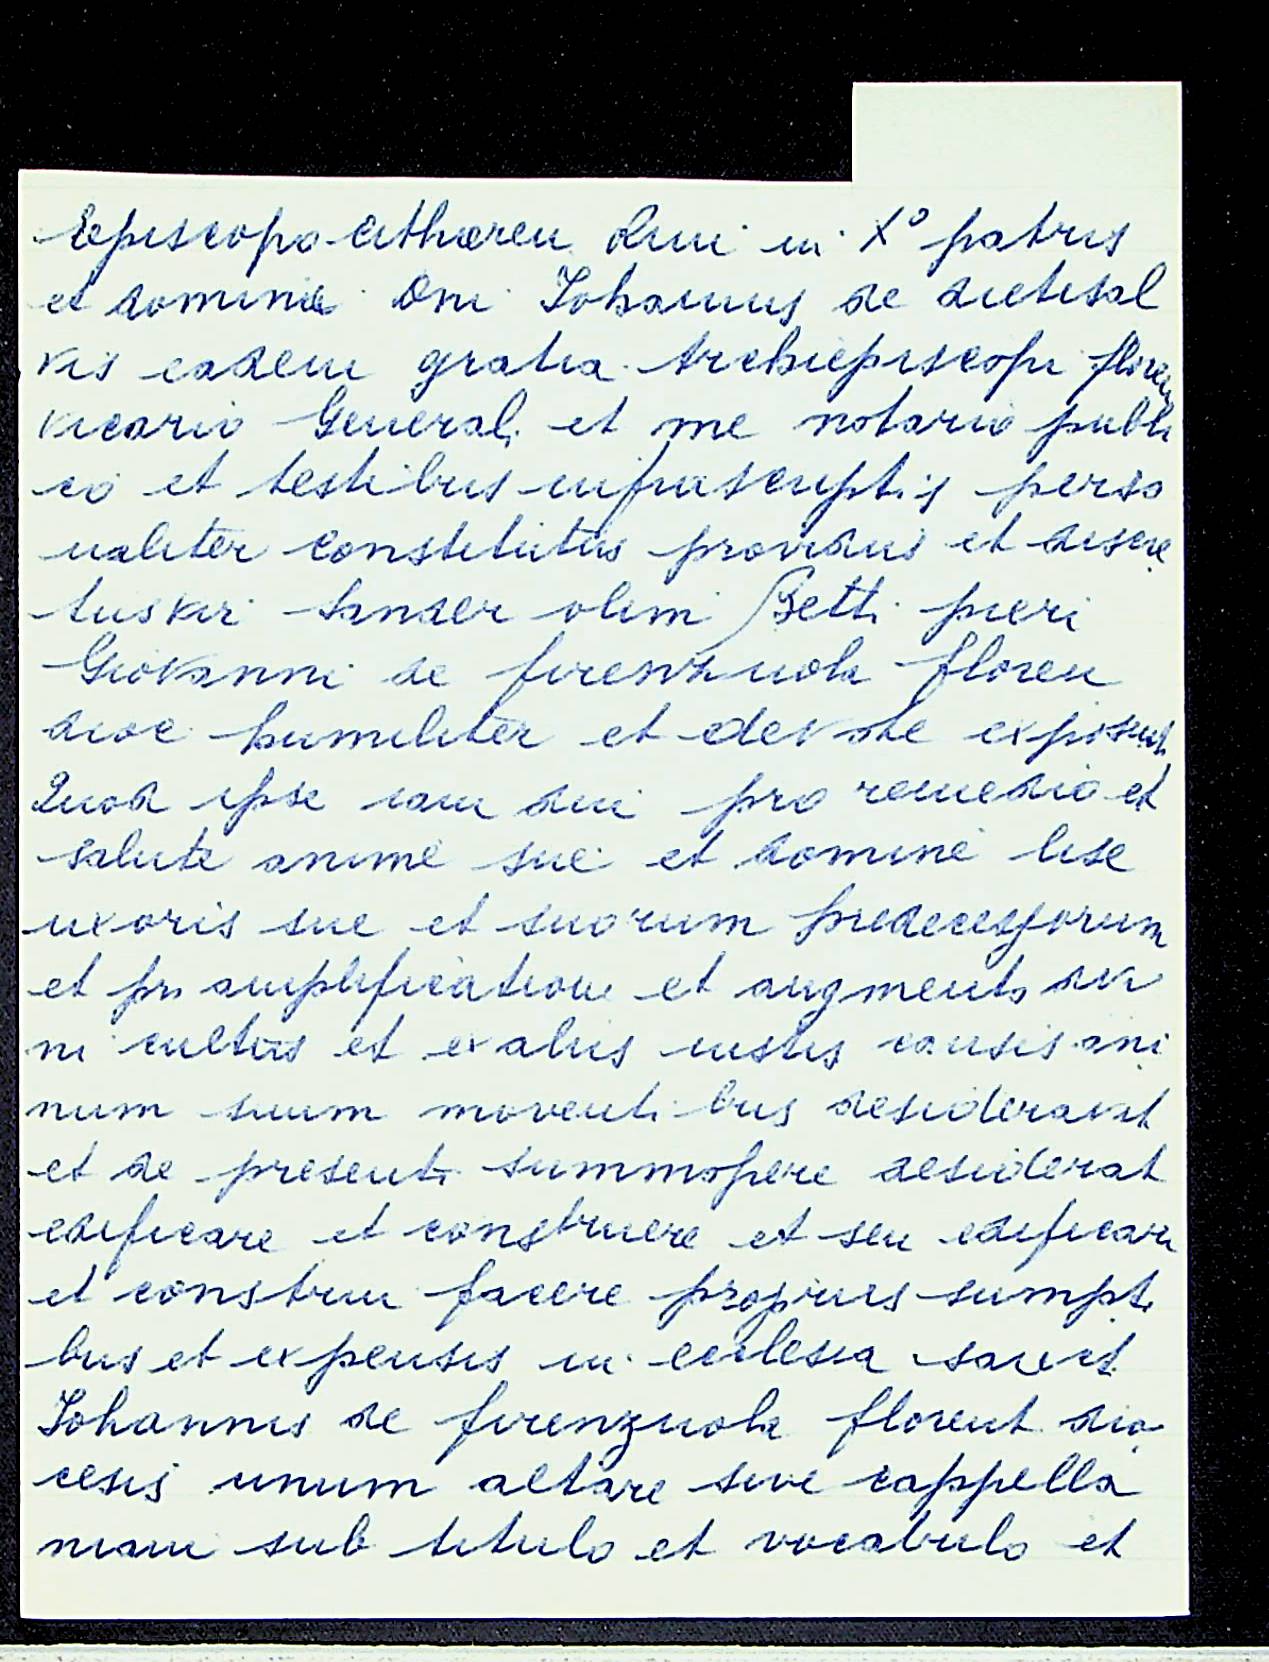 Episcopo Cithæreu dnni in X° patris
et domini Dni Johannis de dietisal
vis eadem gratia Archiepiscopi floren
vicario General. et me notario publi
co et testibus infrascriptis perso
naliter constitutus providus et discre
tus vir Sander olim Betti pieri
Giovanni de firenzuola floren
dioc humiliter et devote exposuit
Quod ipse iam diu pro remedio et
salute anime sue et domine lise
uxoris sue et suorum predecessorum
et pro amplificatione et augmento divi
ni cultus et ex aliis iustis causis ani
mum suum moventibus desideravit
et de presenti summopere desiderat
edificare et construere et seu edificari
et construi facere propriis sumpti
bus et expensis in ecclesia sancti
Johannis de firenzuola florent dio
cesis unum altare sive cappella
niam sub titulo et vocabulo et